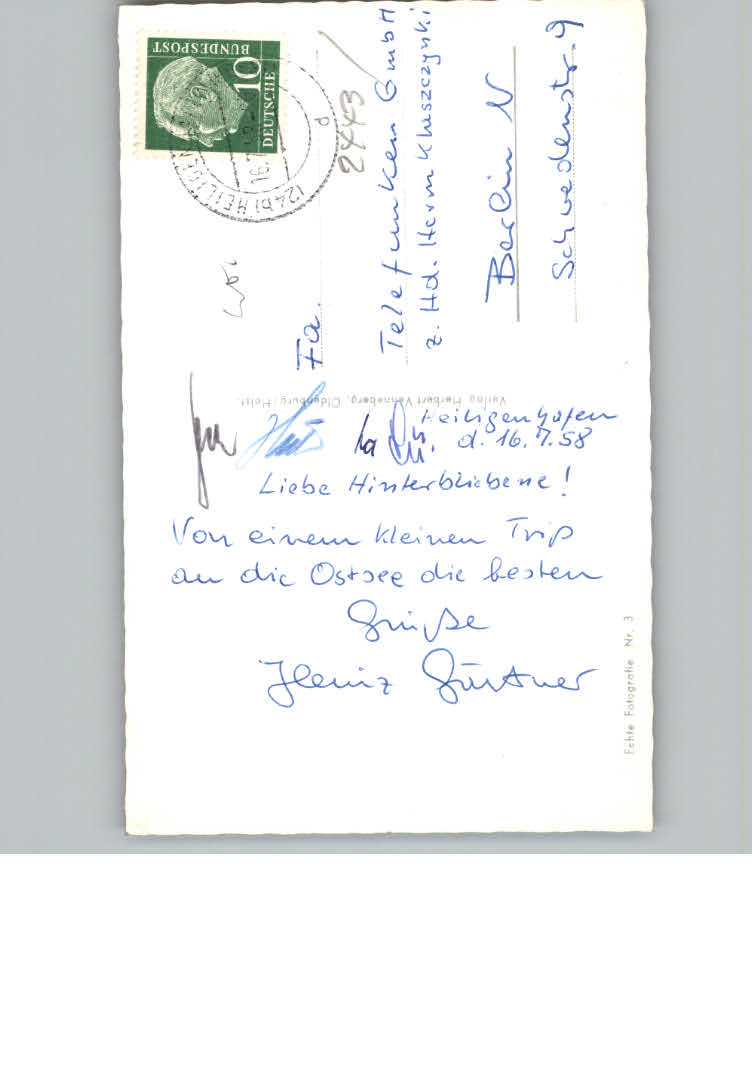 Heiligenhafen
d. 16.7.58
Liebe Hinterbliebene!
Von einem kleinen Trip
an die Ostsee die besten
Grüße
Heinz Gürtner
Fa.
Telefunken GmbH
z. Hd. Herrn Kluszczynski
Berlin N
Schwedenstr. 9
2443
DEUTSCHE
BUNDESPOST
10
(24b) HEILIGEN
16.7
d
Verlag Herbert Venneberg, Oldenburg/Holst.
Echte Fotografie Nr. 3